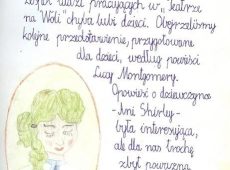 ludzi pracujących w „Teatrze
na Woli” chyba lubi dzieci. Obejrzeliśmy
kolejne przedstawienie, przygotowane
dla dzieci, według powieści
Lucy Montgomery.
Opowieść o dziewczynce
- Ani Shirley -
była interesująca,
ale dla nas trochę
zbyt poważna.